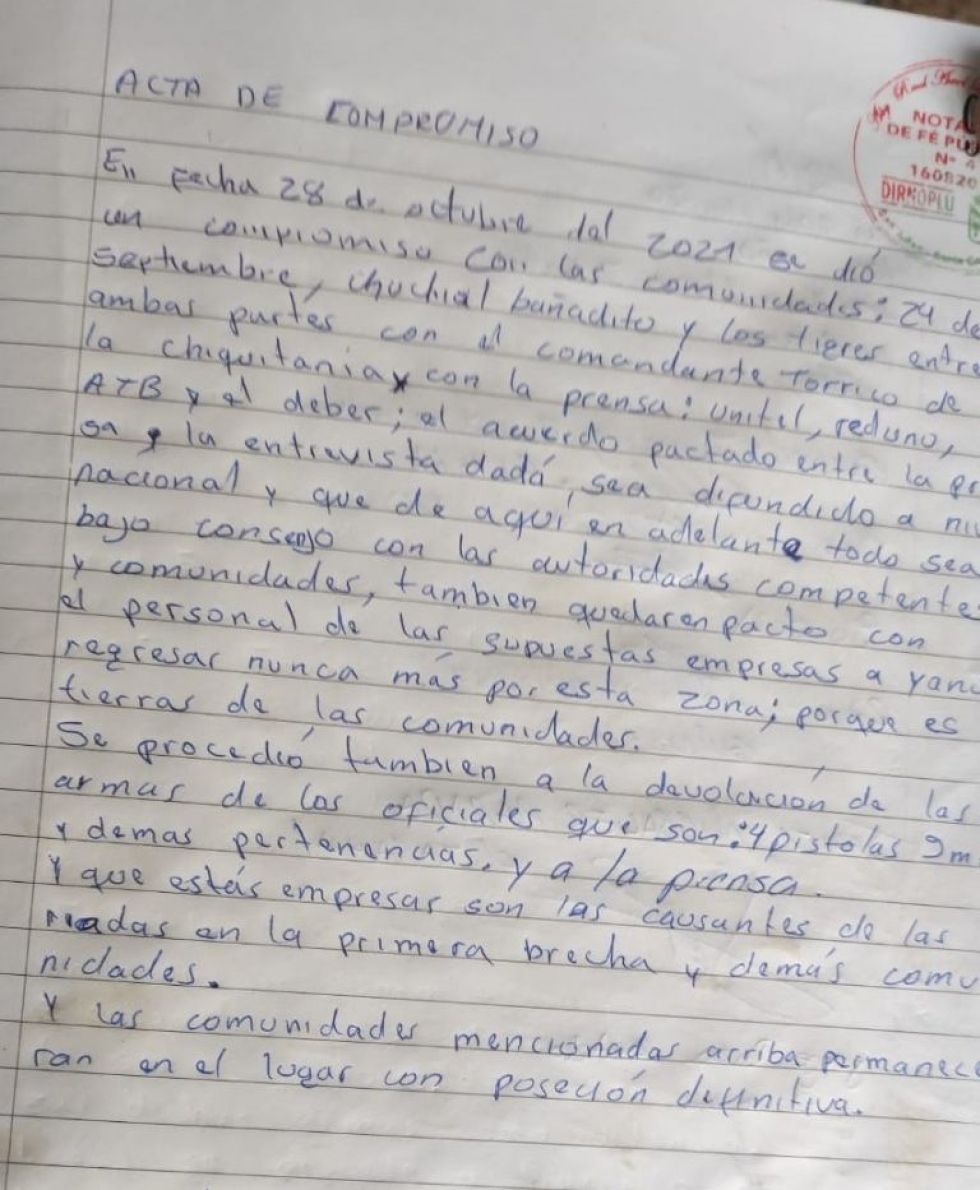 ACTA DE COMPROMISO
NOTA
DE FÉ PÚ
N° 4
160820
DIRNOPLU
En fecha 28 de octubre dal 2021 se dió
un compromiso con las comunidades: 24 de
septiembre, chuchial bañadito y los tigres entre
ambas partes con el comandante Torrico de
la chiquitania y con la prensa: unitel, reduno,
ATB y el deber; el acuerdo pactado entre la pr
sa y la entrevista dadá, sea difundido a ni
nacional y que de aquí en adelante todo sea
bajo consenjo con las autoridades competente
y comunidades, tambien quedaren pacto con
el personal de las supuestas empresas a
regresar nunca más por esta zona; porque es
tierras de las comunidades.
Se procedió tambien a la devolución de las
armas de los oficiales que son: 4 pistolas 9m
y demas pertenencias. y a la prensa.
Y que estás empresas son las causantes de las
madas en la primera brecha y demás comu
nidades.
Y las comunidades mencionadas arriba permanece
ran en el lugar con poseción definitiva.